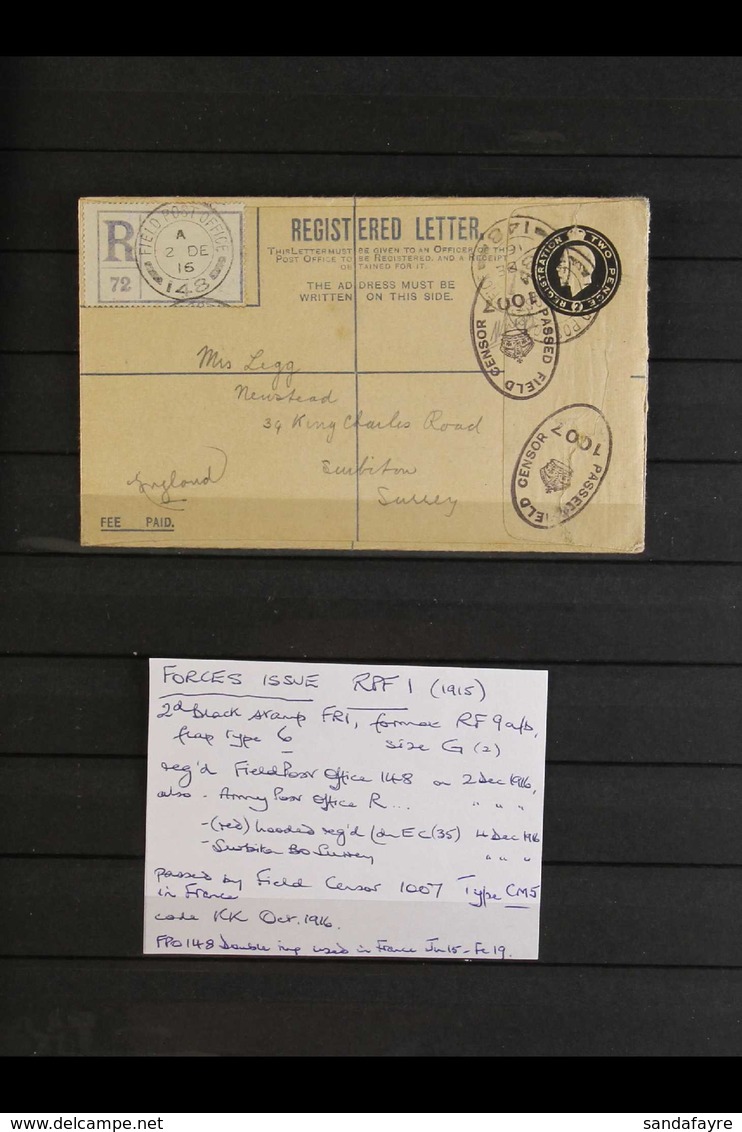 R
72
FIELD POST OFFICE
A
2 DE
16
148
REGISTERED LETTER.
THIS LETTER MUST BE GIVEN TO AN OFFICER OF THE
POST OFFICE TO BE REGISTERED, AND A RECEIPT
OBTAINED FOR IT.
THE ADDRESS MUST BE
WRITTEN ON THIS SIDE.
REGISTRATION TWO PENCE 2
148
PASSED FIELD CENSOR
1007
PASSED FIELD CENSOR
1007
Mrs Legg
Newstead
39 King Charles Road
Surbiton
Surrey
England
FEE PAID.
FORCES ISSUE RPF 1 (1915)
2d black stamp FR1, format RF 9a/b,
flap type 6 size G (2)
reg'd Field Post Office 148 on 2 Dec 1916,
also - Army Post Office R... " " "
- (red) hooded reg'd EC (35) 4 Dec 1916
- Surbiton BO Surrey " " "
passed by Field Censor 1007 Type CM5
in France
code KK Oct. 1916.
FPO 148 Double ring used in France Jn 15 - Fe 19.
delcampe.net
sandafayre